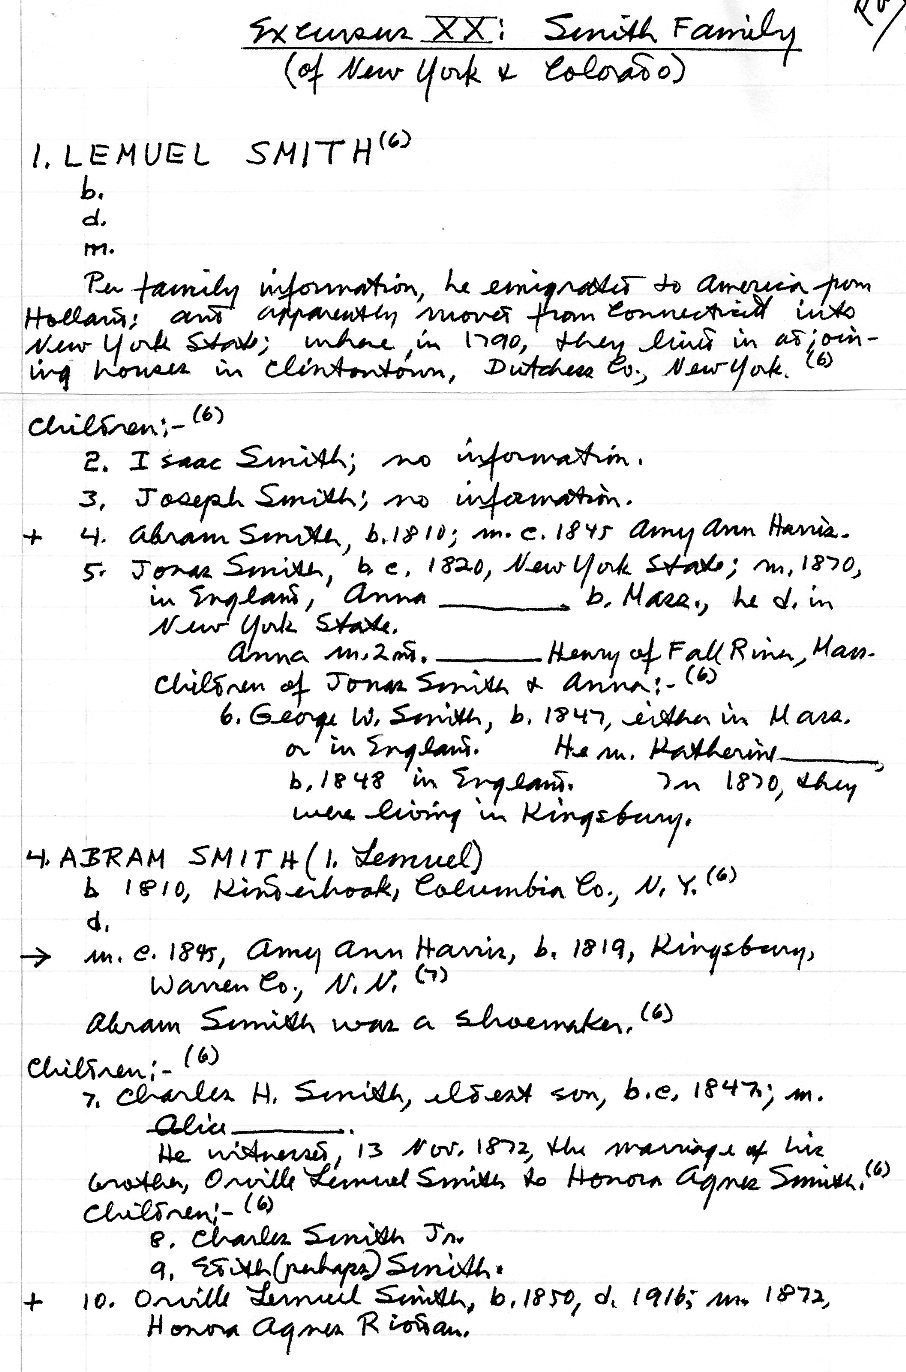 Excursus XX: Smith Family
(of New York & Colorado)
1. LEMUEL SMITH (6)
b.
d.
m.
Per family information, he emigrated to America from
Holland; and apparently moved from Connecticut into
New York State; where, in 1790, they lived in adjoin-
ing houses in Clintontown, Dutchess Co., New York. (6)
Children:- (6)
2. Isaac Smith; no information.
3. Joseph Smith; no information.
+ 4. Abram Smith, b. 1810; m. c. 1845 Amy Ann Harris.
5. Jonas Smith, b. c. 1820, New York State; m. 1870,
in England, Anna ________ b. Mass., he d. in
New York State.
Anna m. 2nd. ________ Henry of Fall River, Mass.
Children of Jonas Smith & Anna:- (6)
6. George W. Smith, b. 1847, either in Mass.
or in England. He m. Katherine ________,
b. 1848 in England. In 1870, they
were living in Kingsbury.
4. ABRAM SMITH (1. Lemuel)
b 1810, Kinderhook, Columbia Co., N. Y. (6)
d.
→ m. c. 1845, Amy Ann Harris, b. 1819, Kingsbury,
Warren Co., N. N. (7)
Abram Smith was a shoemaker. (6)
Children:- (6)
7. Charles H. Smith, eldest son, b. c. 1847; m.
Alice ________.
He witnessed, 13 Nov. 1872, the marriage of his
brother, Orville Lemuel Smith to Honora Agnes Smith. (6)
Children:- (6)
8. Charles Smith Jr.
9. Edith (perhaps) Smith.
+ 10. Orville Lemuel Smith, b. 1850, d. 1916; m. 1872,
Honora Agnes Riordan.